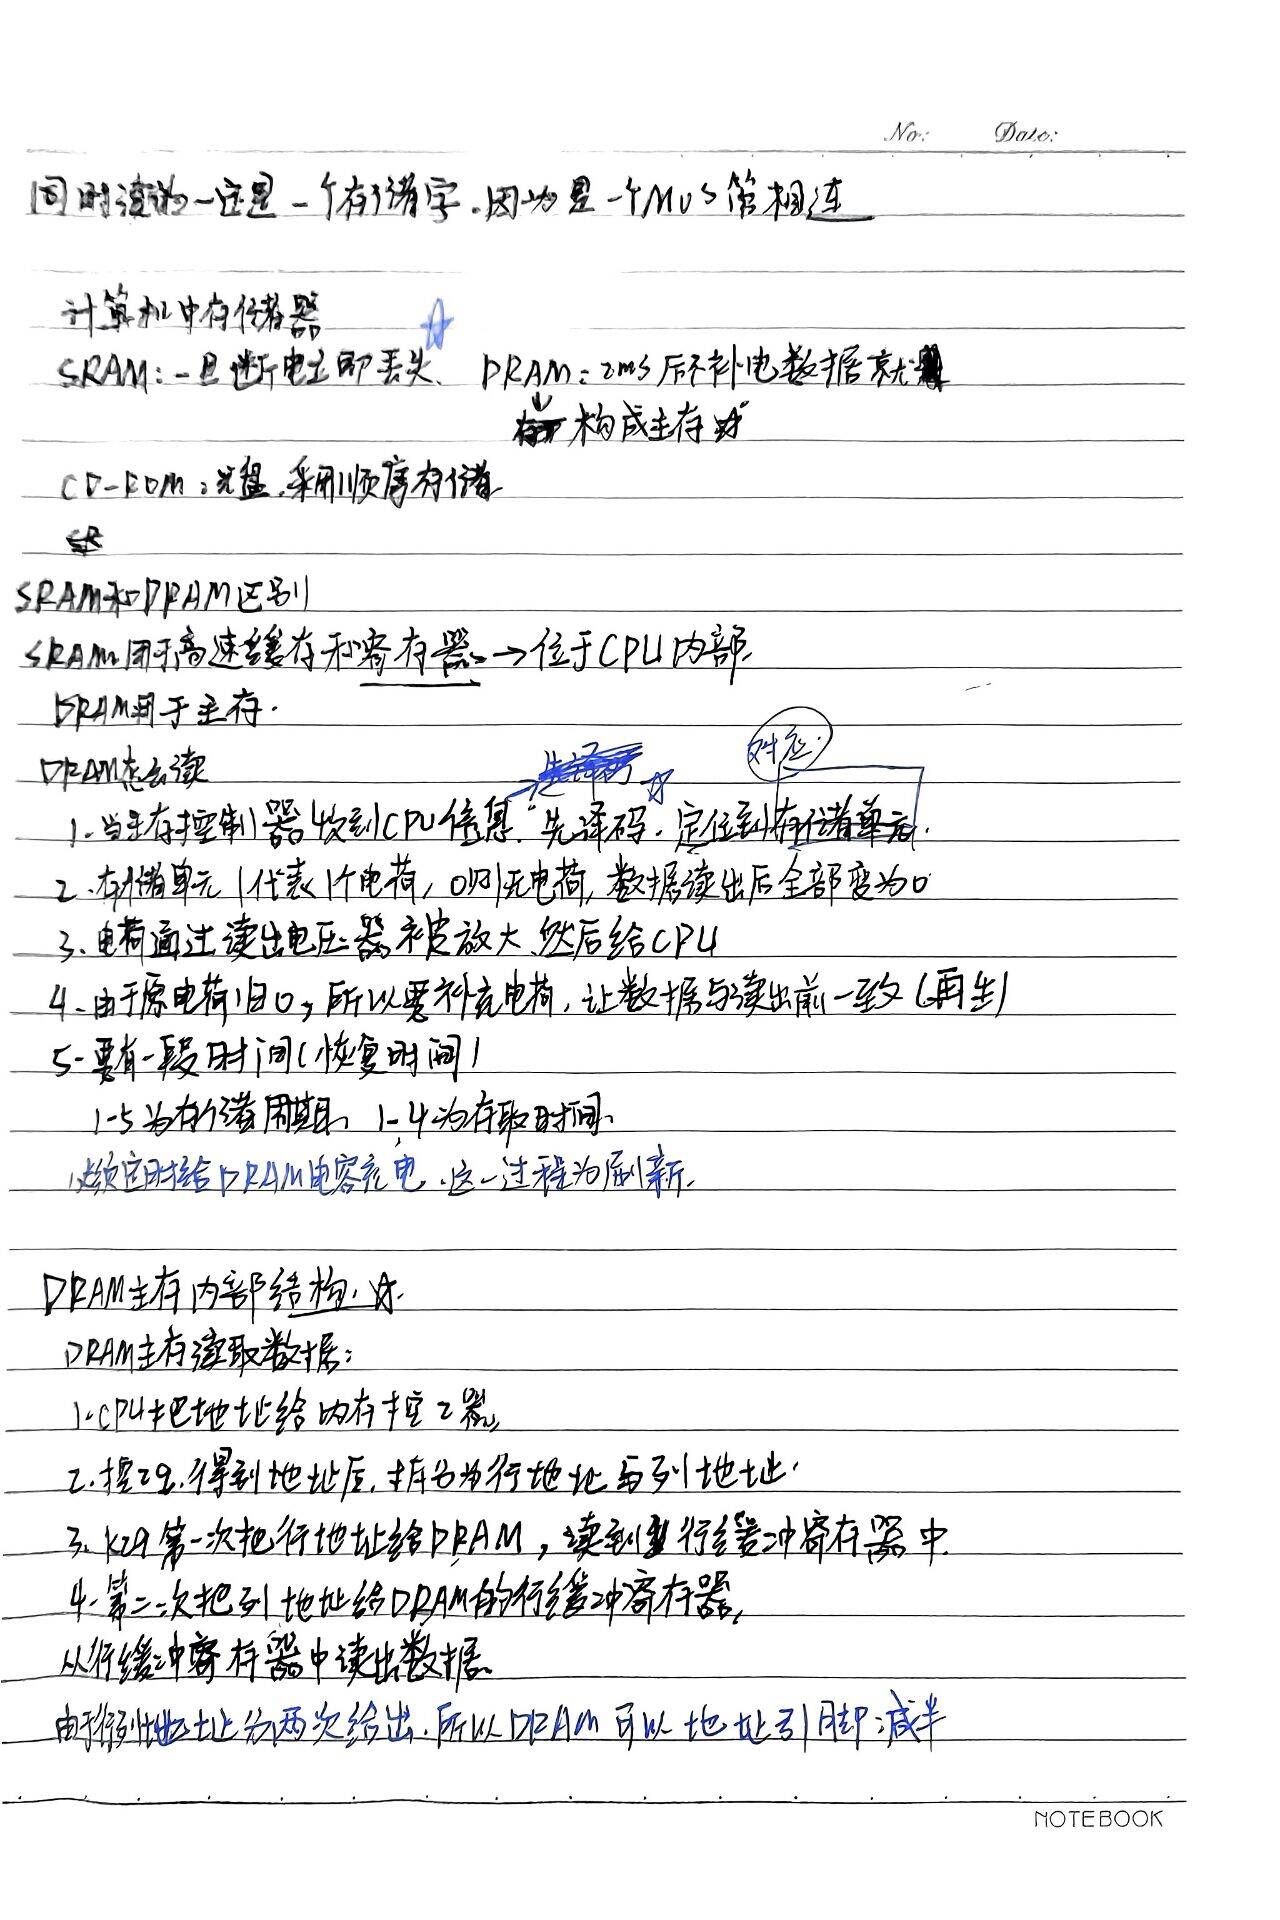 No: Date:
同时读的一定是一个存储字.因为是一个MOS管相连
计算机中存储器
SRAM:一旦断电立即丢失、DRAM:2ms后不补电数据就
构成主存☆
CD-ROM:光盘.采用顺序存储
SRAM和DRAM区别
SRAM用于高速缓存和寄存器→位于CPU内部.
DRAM用于主存.
DRAM怎么读
对应.
1.当主存控制器收到CPU信息.先译码.定位到存储单元.
2.存储单元1代表1个电荷,0则无电荷,数据读出后全部变为0
3.电荷通过读出电压器被放大、然后给CPU
4.由于原电荷归0,所以要补充电荷,让数据与读出前一致(再生)
5.要有一段时间(恢复时间)
1-5为存储周期、1-4为存取时间.
必须定时给DRAM电容充电.这一过程为刷新.
DRAM主存内部结构.☆.
DRAM主存读取数据:
1.CPU把地址给内存控z器,
2.控z器.得到地址后,拆分为行地址与列地址.
3.kzq第一次把行地址给DRAM,读到行缓冲寄存器中.
4.第二次把列地址给DRAM的行缓冲寄存器,
从行缓冲寄存器中读出数据.
由于行列地址分两次给出.所以DRAM可以地址引脚减半
NOTEBOOK